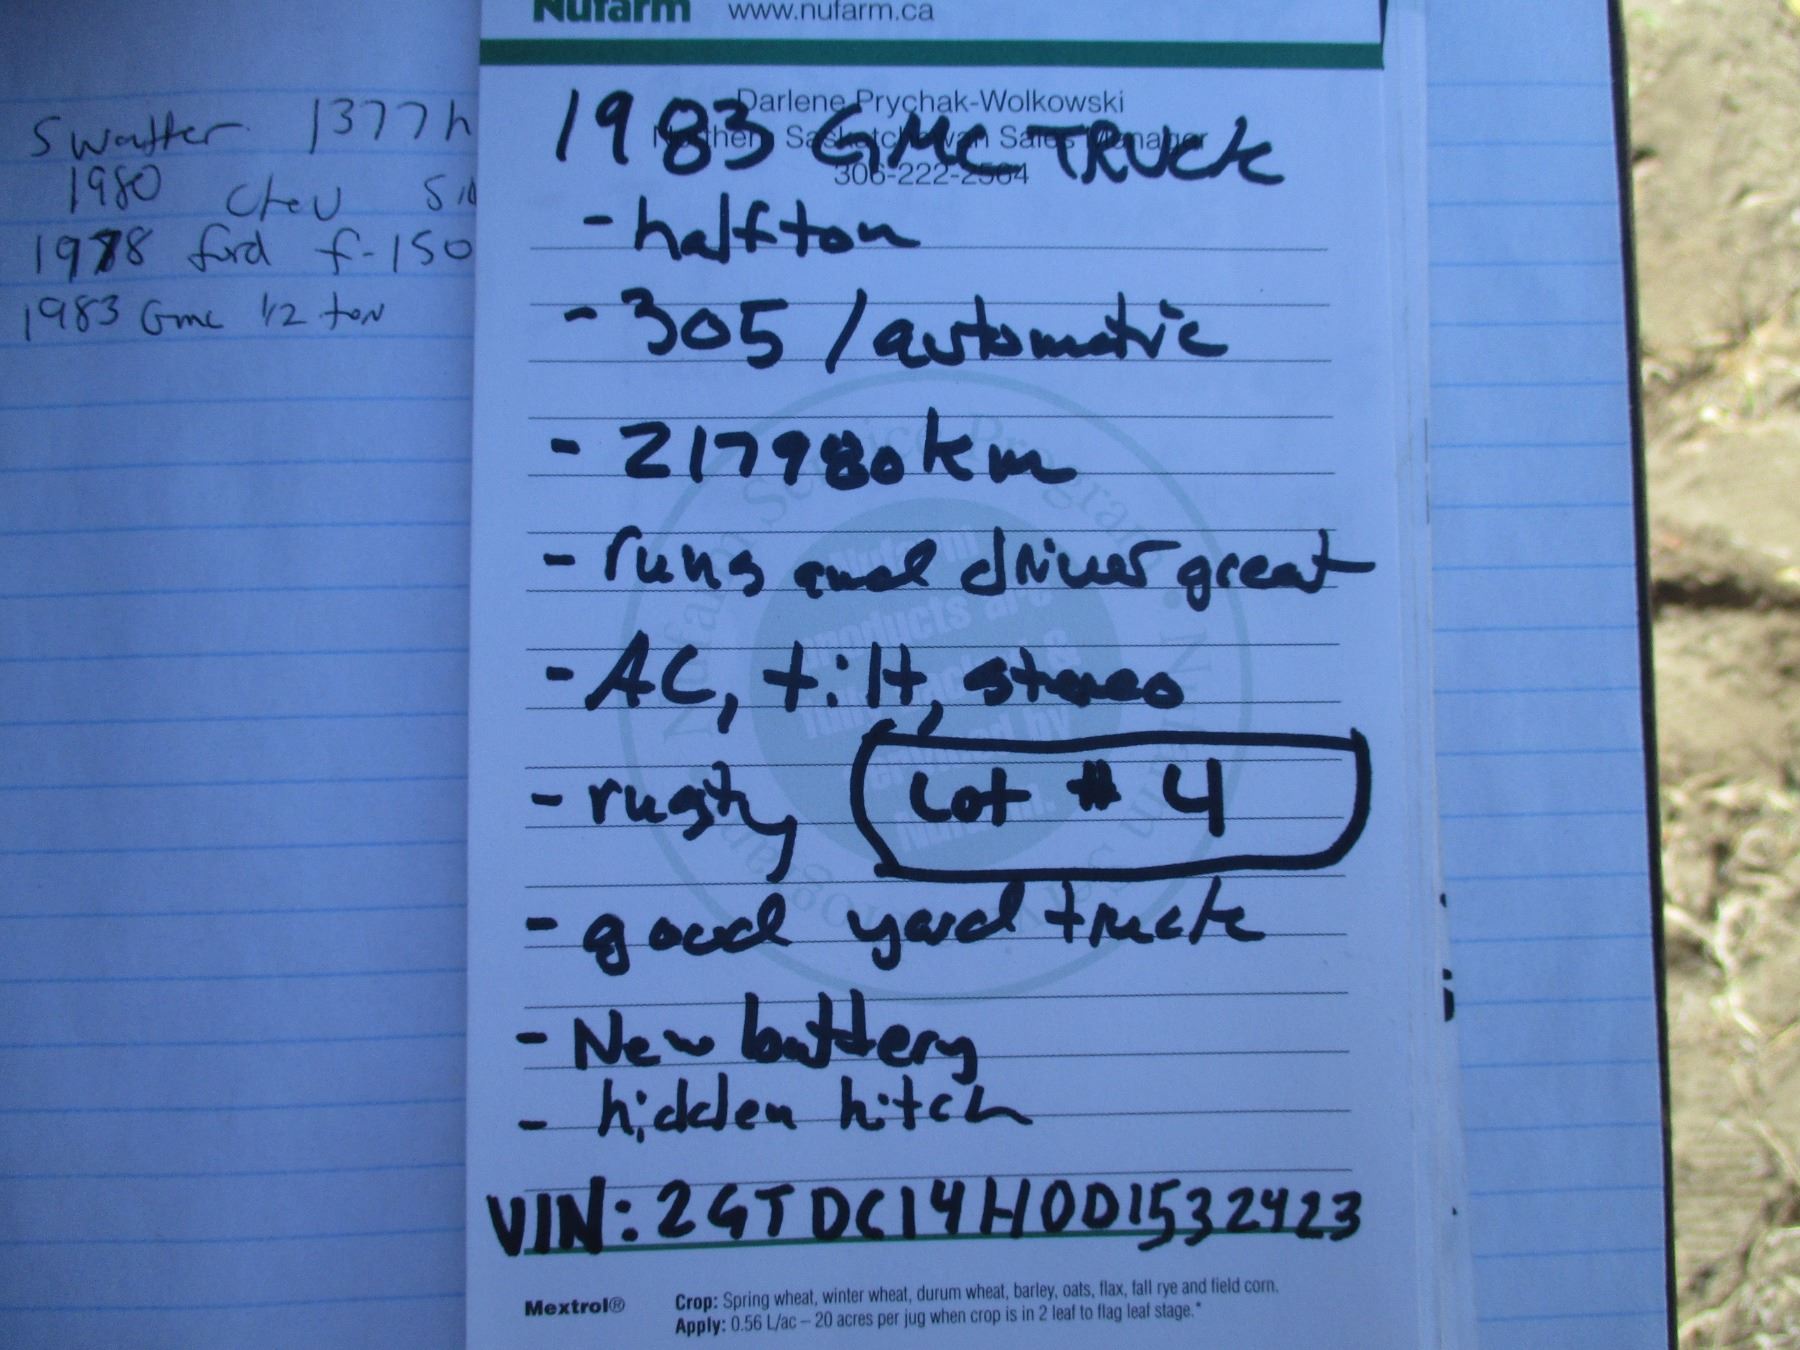 Swatter 1377h
1980 Chev
1978 ford f-150
1983 Gmc 1/2 ton
Nufarm www.nufarm.ca
Darlene Prychak-Wolkowski
Northern Saskatchewan Sales Manager
306-222-2564
1983 GMC TRUCK
- half ton
- 305 / automatic
- 217980 km
- runs and drives great
- AC, tilt, stereo
- rusty
Lot # 4
- good yard truck
- New battery
- hidden hitch
VIN: 2GTDC14H0D1532423
Mextrol® Crop: Spring wheat, winter wheat, durum wheat, barley, oats, flax, fall rye and field corn.
Apply: 0.56 L/ac – 20 acres per jug when crop is in 2 leaf to flag leaf stage.*